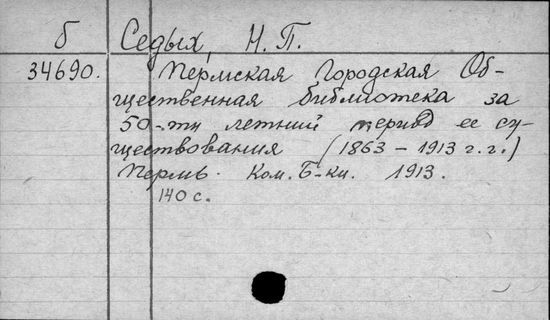 б Седых, Н. П.
34690. Пермская Городская Об-
щественная библиотека за
50-ти летний период ее су-
ществования (1863 – 1913 г.г.)
Пермь. Ком. Б-ки. 1913.
140 с.